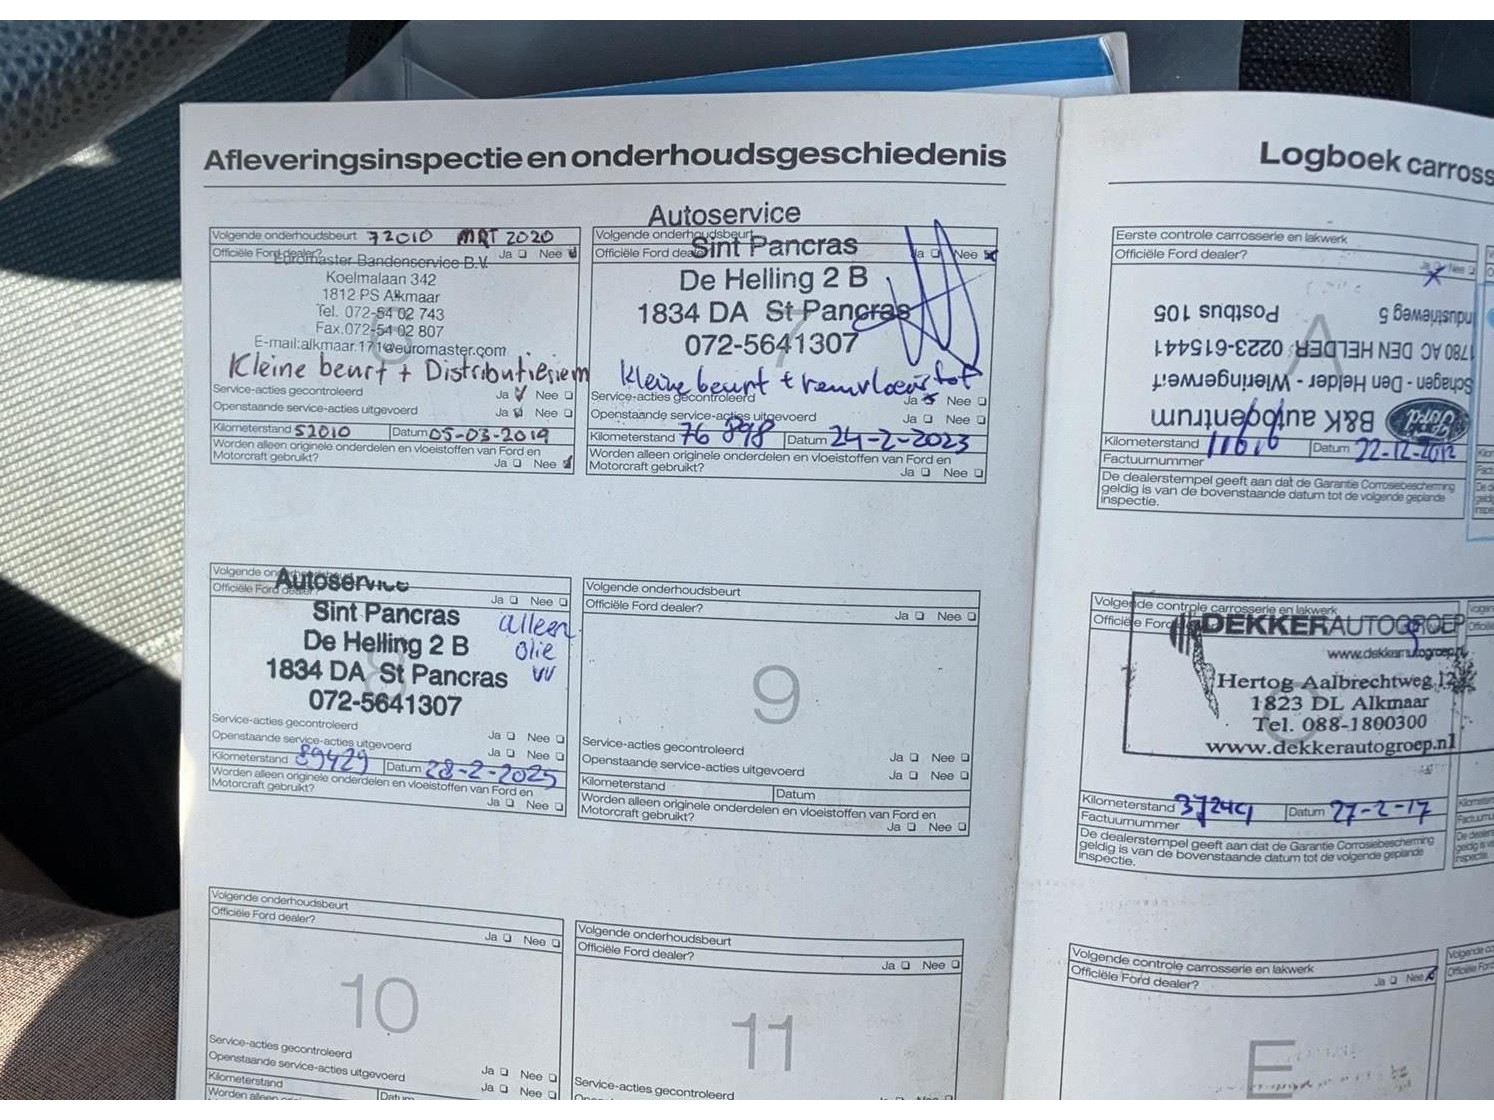 Afleveringsinspectie en onderhoudsgeschiedenis
Volgende onderhoudsbeurt 72010 MRT 2020
Officiële Ford dealer? Ja Nee
Euromaster Bandenservice B.V.
Koelmalaan 342
1812 PS Alkmaar
Tel. 072-54 02 743
Fax.072-54 02 807
E-mail:alkmaar.171@euromaster.com
6
Kleine beurt + Distributieriem
Service-acties gecontroleerd Ja Nee
Openstaande service-acties uitgevoerd Ja Nee
Kilometerstand 52010 Datum 05-03-2019
Worden alleen originele onderdelen en vloeistoffen van Ford en
Motorcraft gebruikt? Ja Nee
Autoservice
Volgende onderhoudsbeurt
Officiële Ford dealer? Ja Nee
Sint Pancras
De Helling 2 B
1834 DA St Pancras
072-5641307
7
Kleine beurt + remvloeistof
Service-acties gecontroleerd Ja Nee
Openstaande service-acties uitgevoerd Ja Nee
Kilometerstand 76 898 Datum 24-2-2023
Worden alleen originele onderdelen en vloeistoffen van Ford en
Motorcraft gebruikt? Ja Nee
Officiële Ford Ja Nee
Autoservice
Sint Pancras
De Helling 2 B
1834 DA St Pancras
072-5641307
8
alleen
olie
Service-acties gecontroleerd Ja Nee
Openstaande service-acties uitgevoerd Ja Nee
Kilometerstand 89429 Datum 28-2-2025
Worden alleen originele onderdelen en vloeistoffen van Ford en
Motorcraft gebruikt? Ja Nee
Volgende onderhoudsbeurt
Officiële Ford dealer? Ja Nee
9
Service-acties gecontroleerd Ja Nee
Openstaande service-acties uitgevoerd Ja Nee
Kilometerstand Datum
Worden alleen originele onderdelen en vloeistoffen van Ford en
Motorcraft gebruikt? Ja Nee
Volgende onderhoudsbeurt
Officiële Ford dealer? Ja Nee
10
Service-acties gecontroleerd Ja Nee
Openstaande service-acties uitgevoerd Ja Nee
Kilometerstand Datum
Worden alleen
Volgende onderhoudsbeurt
Officiële Ford dealer? Ja Nee
11
Service-acties gecontroleerd
Logboek carross
Eerste controle carrosserie en lakwerk
Officiële Ford dealer? Nee
A
B&K autocentrum
Ford
Schagen - Den Helder - Wieringerwerf
1780 AC DEN HELDER 0223-615441
Industrieweg 5 Postbus 105
Kilometerstand 11616 Datum 22-12-2012
Factuurnummer
De dealerstempel geeft aan dat de Garantie Corrosiebescherming
geldig is van de bovenstaande datum tot de volgende geplande
inspectie.
Volgende controle carrosserie en lakwerk
Officiële Ford
DEKKERAUTOGROEP
www.dekkerautogroep.nl
Hertog Aalbrechtweg 12
1823 DL Alkmaar
Tel. 088-1800300
www.dekkerautogroep.nl
C
Kilometerstand 37249 Datum 27-2-17
Factuurnummer
De dealerstempel geeft aan dat de Garantie Corrosiebescherming
geldig is van de bovenstaande datum tot de volgende geplande
inspectie.
Volgende controle carrosserie en lakwerk
Officiële Ford dealer? Ja Nee
E